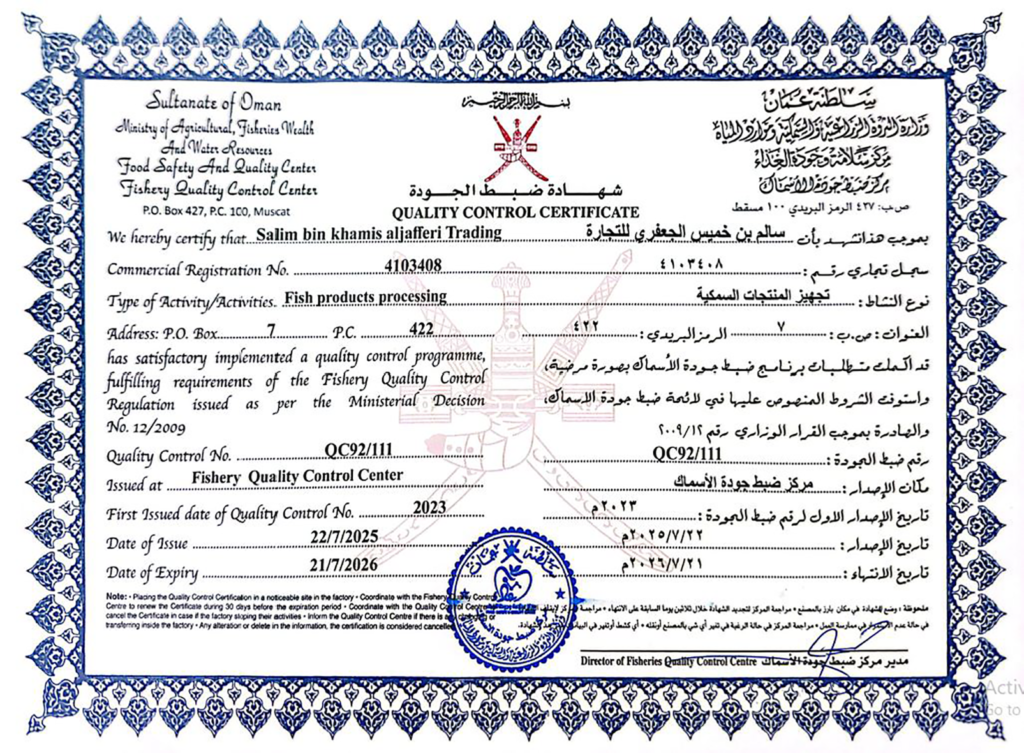 Sultanate of Oman
Ministry of Agricultural, Fisheries Wealth
And Water Resources
Food Safety And Quality Center
Fishery Quality Control Center
P.O. Box 427, P.C. 100, Muscat
بسم الله الرحمن الرحيم
سلطنة عمان
وزارة الثروة الزراعية والسمكية وموارد المياه
مركز سلامة وجودة الغذاء
مركز ضبط جودة الأسماك
ص.ب: ٤٢٧ الرمز البريدي ١٠٠ مسقط
شهادة ضبط الجودة
QUALITY CONTROL CERTIFICATE
We hereby certify that Salim bin khamis aljafferi Trading
بموجب هذا نشهد بأن سالم بن خميس الجعفري للتجارة
Commercial Registration No. 4103408
سجل تجاري رقم: ٤١٠٣٤٠٨
Type of Activity/Activities. Fish products processing
نوع النشاط: تجهيز المنتجات السمكية
Address: P.O. Box 7 P.C. 422
العنوان: ص.ب: ٧ الرمز البريدي: ٤٢٢
has satisfactory implemented a quality control programme,
fulfilling requirements of the Fishery Quality Control
Regulation issued as per the Ministerial Decision
No. 12/2009
قد أكملت متطلبات برنامج ضبط جودة الأسماك بصورة مرضية،
واستوفت الشروط المنصوص عليها في لائحة ضبط جودة الاسماك،
والصادرة بموجب القرار الوزاري رقم ٢٠٠٩/١٢
Quality Control No. QC92/111
رقم ضبط الجودة: QC92/111
Issued at Fishery Quality Control Center
مكان الإصدار: مركز ضبط جودة الأسماك
First Issued date of Quality Control No. 2023
تاريخ الإصدار الاول لرقم ضبط الجودة: ٢٠٢٣م
Date of Issue 22/7/2025
تاريخ الإصدار: ٢٠٢٥/٧/٢٢م
Date of Expiry 21/7/2026
تاريخ الانتهاء: ٢٠٢٦/٧/٢١م
Note: • Placing the Quality Control Certification in a noticeable site in the factory • Coordinate with the Fishery Quality Control
Centre to renew the Certificate during 30 days before the expiration period • Coordinate with the Quality Control Centre
cancel the Certificate in case if the factory stoping their activities • Inform the Quality Control Centre if there is any changing or
transferring inside the factory • Any alteration or delete in the information, the certification is considered cancelled
ملحوظة: • وضع الشهادة في مكان بارز بالمصنع • مراجعة المركز لتجديد الشهادة خلال ثلاثين يوما السابقة على الانتهاء • مراجعة
في حالة عدم في ممارسة العمل • مراجعة المركز في حالة الرغبة في تغيير أي شي بالمصنع أو نقله • أي كشط أو تغيير في
سلطنة عمان
Director of Fisheries Quality Control Centre مدير مركز ضبط جودة الأسماك